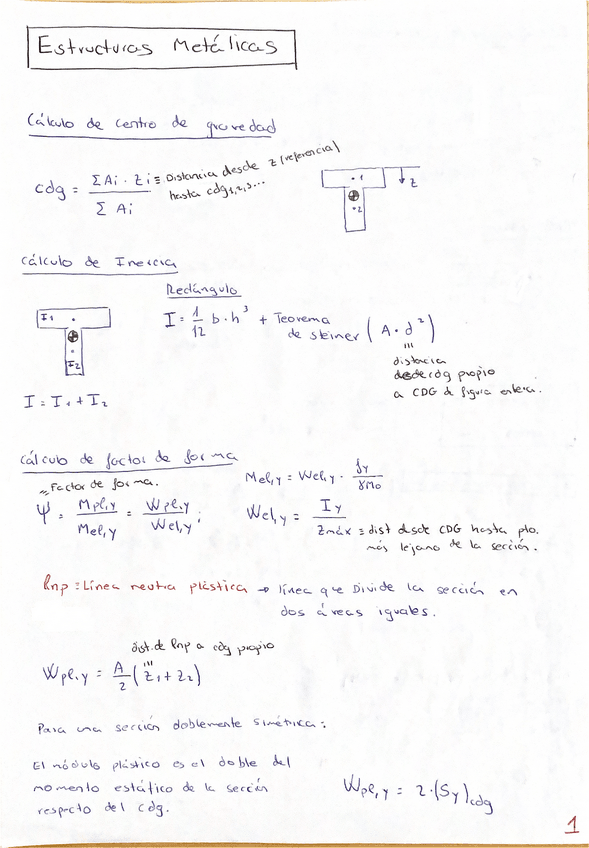 Estructuras Metálicas
Cálculo de centro de gravedad
cdg = Σ Ai · Zi / Σ Ai ≡ Distancia desde z (referencia)
hasta cdg1,2,3...
·1
·2
z
Cálculo de Inercia
Rectángulo
I = 1/12 b·h³ + Teorema
de steiner (A·d²)
distancia
desde cdg propio
a CDG de figura entera.
I1
I2
I = I1 + I2
Cálculo de factor de forma
Factor de forma.
Ψ = Mpl,y / Mel,y = Wpl,y / Wel,y ;
Mel,y = Wel,y · fy / γM0
Wel,y = Iy / Zmáx ≡ dist desde CDG hasta pto.
más lejano de la sección.
lnp ≡ Línea neutra plástica → línea que Divide la sección en
dos áreas iguales.
dist. de lnp a cdg propio
Wpl,y = A/2 (Z1 + Z2)
Para una sección doblemente simétrica:
El módulo plástico es el doble del
momento estático de la sección
respecto del cdg.
Wpl,y = 2·(Sy)cdg
1